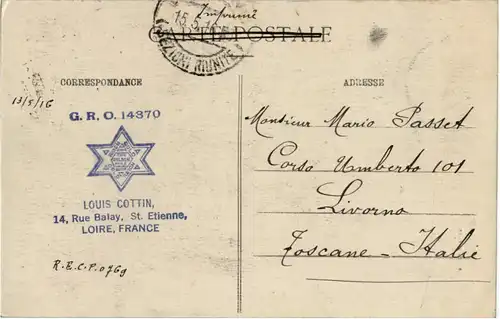 Imprimé
CARTE POSTALE
15.5.1
UFFICI RIUNITI
CORRESPONDANCE
ADRESSE
13/5/16
G. R. O. 14370
LOUIS COTTIN,
14, Rue Balay, St. Etienne,
LOIRE, FRANCE
R.E.C.P. 0769
Monsieur Mario Passet
Corso Umberto 101
Livorno
Toscane - Italie